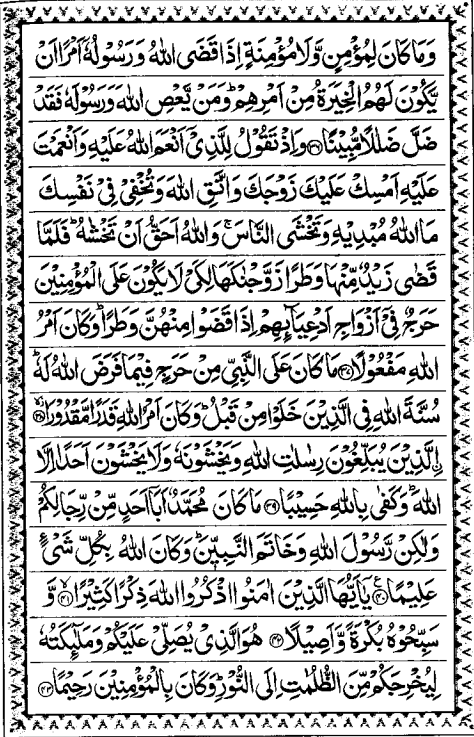 وَمَا كَانَ لِمُؤْمِنٍ وَّلَا مُؤْمِنَةٍ اِذَا قَضَى اللّٰهُ وَرَسُوْلُهٗۤ اَمْرًا اَنْ
يَّكُوْنَ لَهُمُ الْخِيَرَةُ مِنْ اَمْرِهِمْ ؕ وَمَنْ يَّعْصِ اللّٰهَ وَرَسُوْلَهٗ فَقَدْ
ضَلَّ ضَلٰلًا مُّبِيْنًا ﴿۳۶﴾ وَاِذْ تَقُوْلُ لِلَّذِيْۤ اَنْعَمَ اللّٰهُ عَلَيْهِ وَاَنْعَمْتَ
عَلَيْهِ اَمْسِكْ عَلَيْكَ زَوْجَكَ وَاتَّقِ اللّٰهَ وَتُخْفِيْ فِيْ نَفْسِكَ
مَا اللّٰهُ مُبْدِيْهِ وَتَخْشَى النَّاسَ ۚ وَاللّٰهُ اَحَقُّ اَنْ تَخْشٰهُ ؕ فَلَمَّا
قَضٰى زَيْدٌ مِّنْهَا وَطَرًا زَوَّجْنٰكَهَا لِكَيْ لَا يَكُوْنَ عَلَى الْمُؤْمِنِيْنَ
حَرَجٌ فِيْۤ اَزْوَاجِ اَدْعِيَآئِهِمْ اِذَا قَضَوْا مِنْهُنَّ وَطَرًا ؕ وَكَانَ اَمْرُ
اللّٰهِ مَفْعُوْلًا ﴿۳۷﴾ مَا كَانَ عَلَى النَّبِيِّ مِنْ حَرَجٍ فِيْمَا فَرَضَ اللّٰهُ لَهٗ ؕ
سُنَّةَ اللّٰهِ فِي الَّذِيْنَ خَلَوْا مِنْ قَبْلُ ؕ وَكَانَ اَمْرُ اللّٰهِ قَدَرًا مَّقْدُوْرًا ﴿۳۸﴾
الَّذِيْنَ يُبَلِّغُوْنَ رِسٰلٰتِ اللّٰهِ وَيَخْشَوْنَهٗ وَلَا يَخْشَوْنَ اَحَدًا اِلَّا
اللّٰهَ ؕ وَكَفٰى بِاللّٰهِ حَسِيْبًا ﴿۳۹﴾ مَا كَانَ مُحَمَّدٌ اَبَاۤ اَحَدٍ مِّنْ رِّجَالِكُمْ
وَلٰكِنْ رَّسُوْلَ اللّٰهِ وَخَاتَمَ النَّبِيّٖنَ ؕ وَكَانَ اللّٰهُ بِكُلِّ شَيْءٍ
عَلِيْمًا ﴿۴۰﴾ يٰۤاَيُّهَا الَّذِيْنَ اٰمَنُوا اذْكُرُوا اللّٰهَ ذِكْرًا كَثِيْرًا ﴿۴۱﴾ وَّ
سَبِّحُوْهُ بُكْرَةً وَّاَصِيْلًا ﴿۴۲﴾ هُوَ الَّذِيْ يُصَلِّيْ عَلَيْكُمْ وَمَلٰٓئِكَتُهٗ
لِيُخْرِجَكُمْ مِّنَ الظُّلُمٰتِ اِلَى النُّوْرِ ؕ وَكَانَ بِالْمُؤْمِنِيْنَ رَحِيْمًا ﴿۴۳﴾